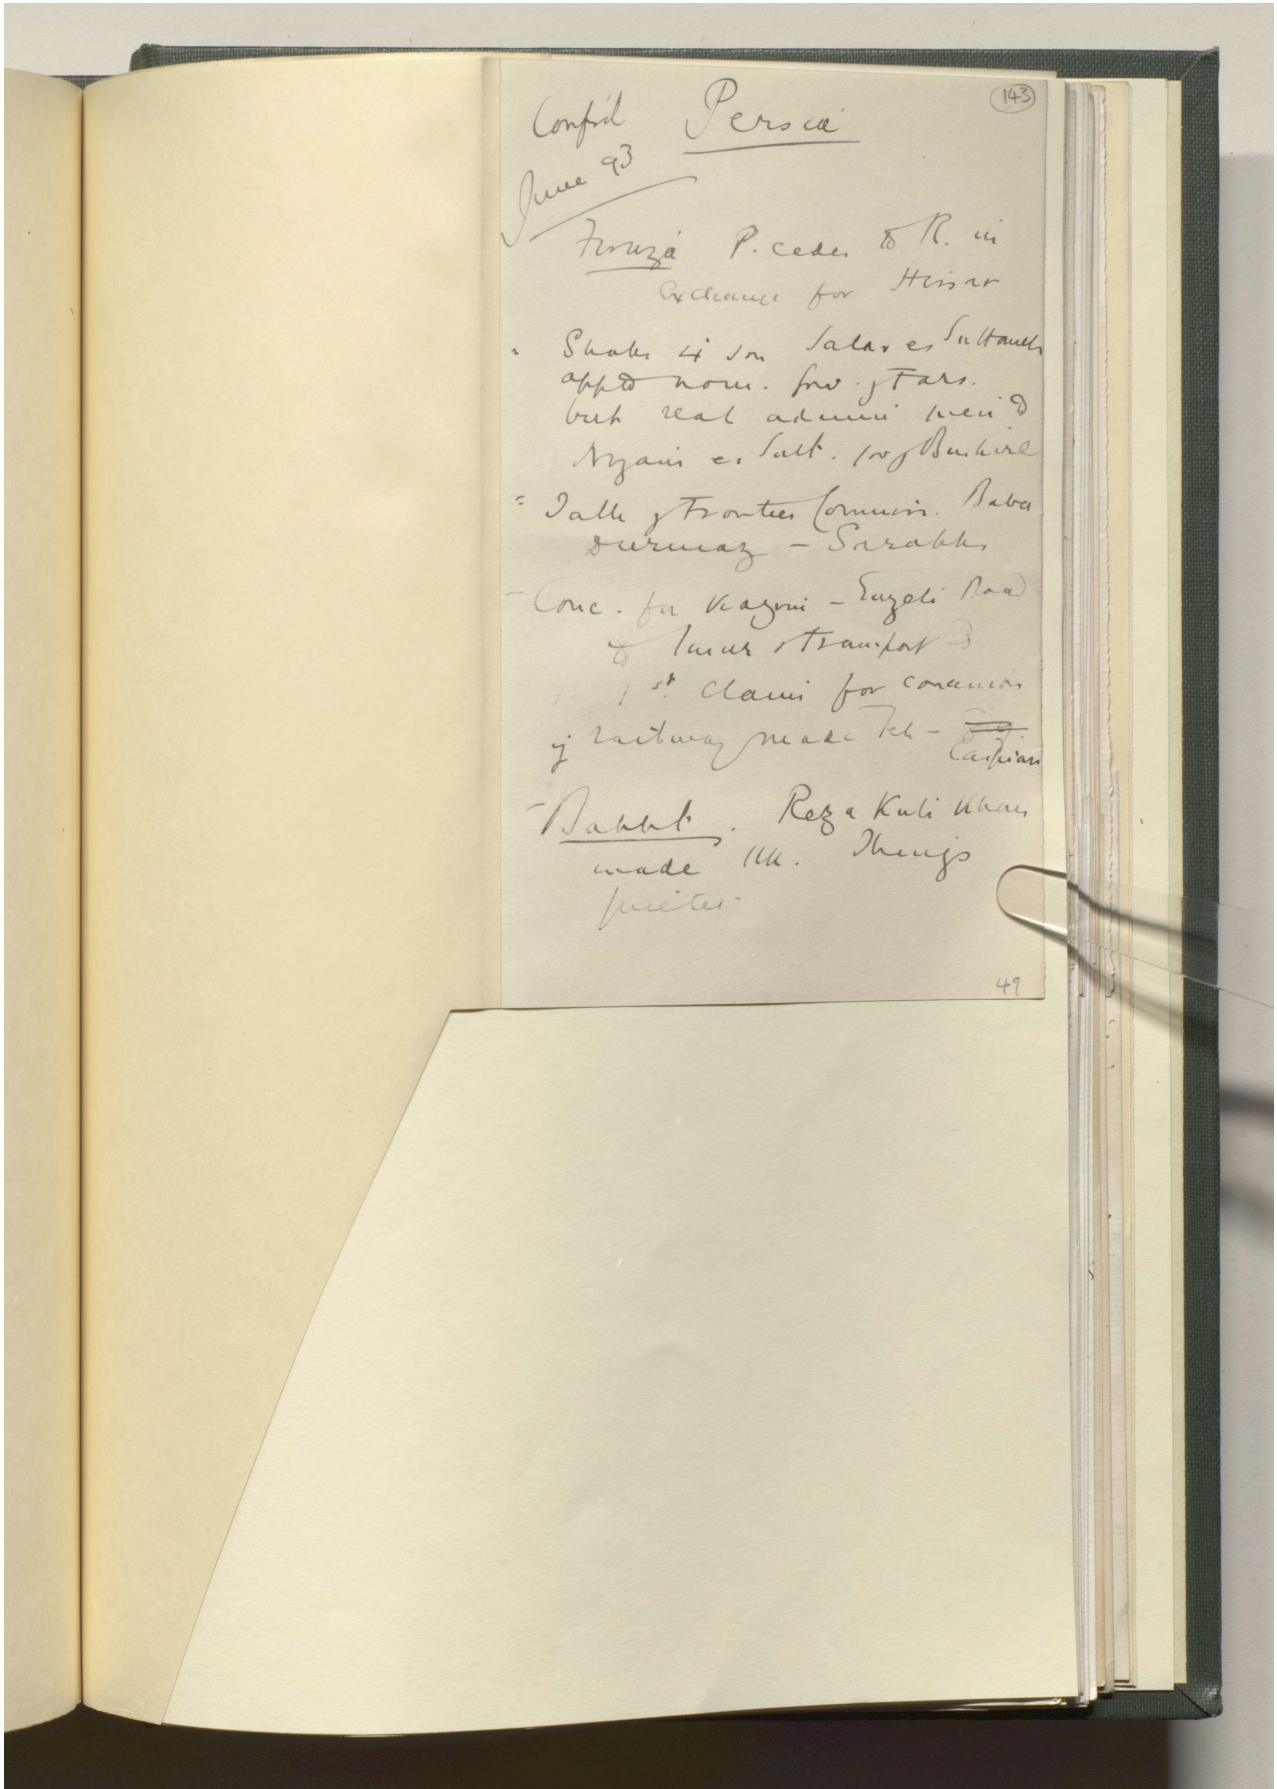 143
Confid Persia
June 93
Firuza P. cedes to R. in
exchange for Hissar
Shahs 4 son Salar es Sultaneh
apptd nom. Gov. of Fars.
but real admin
Nizam es Sult. Gov of Bushire
Talk of Frontier Commiss. Baba
Durmaz - Sarakhs
Conc. for Kazvin - Enzeli Road
to Insur & Transport
1st. claim for concession
if railway made Teh -
Caspian
Bakht. Reza Kuli Khan
made Ilk. Things
quieter
49